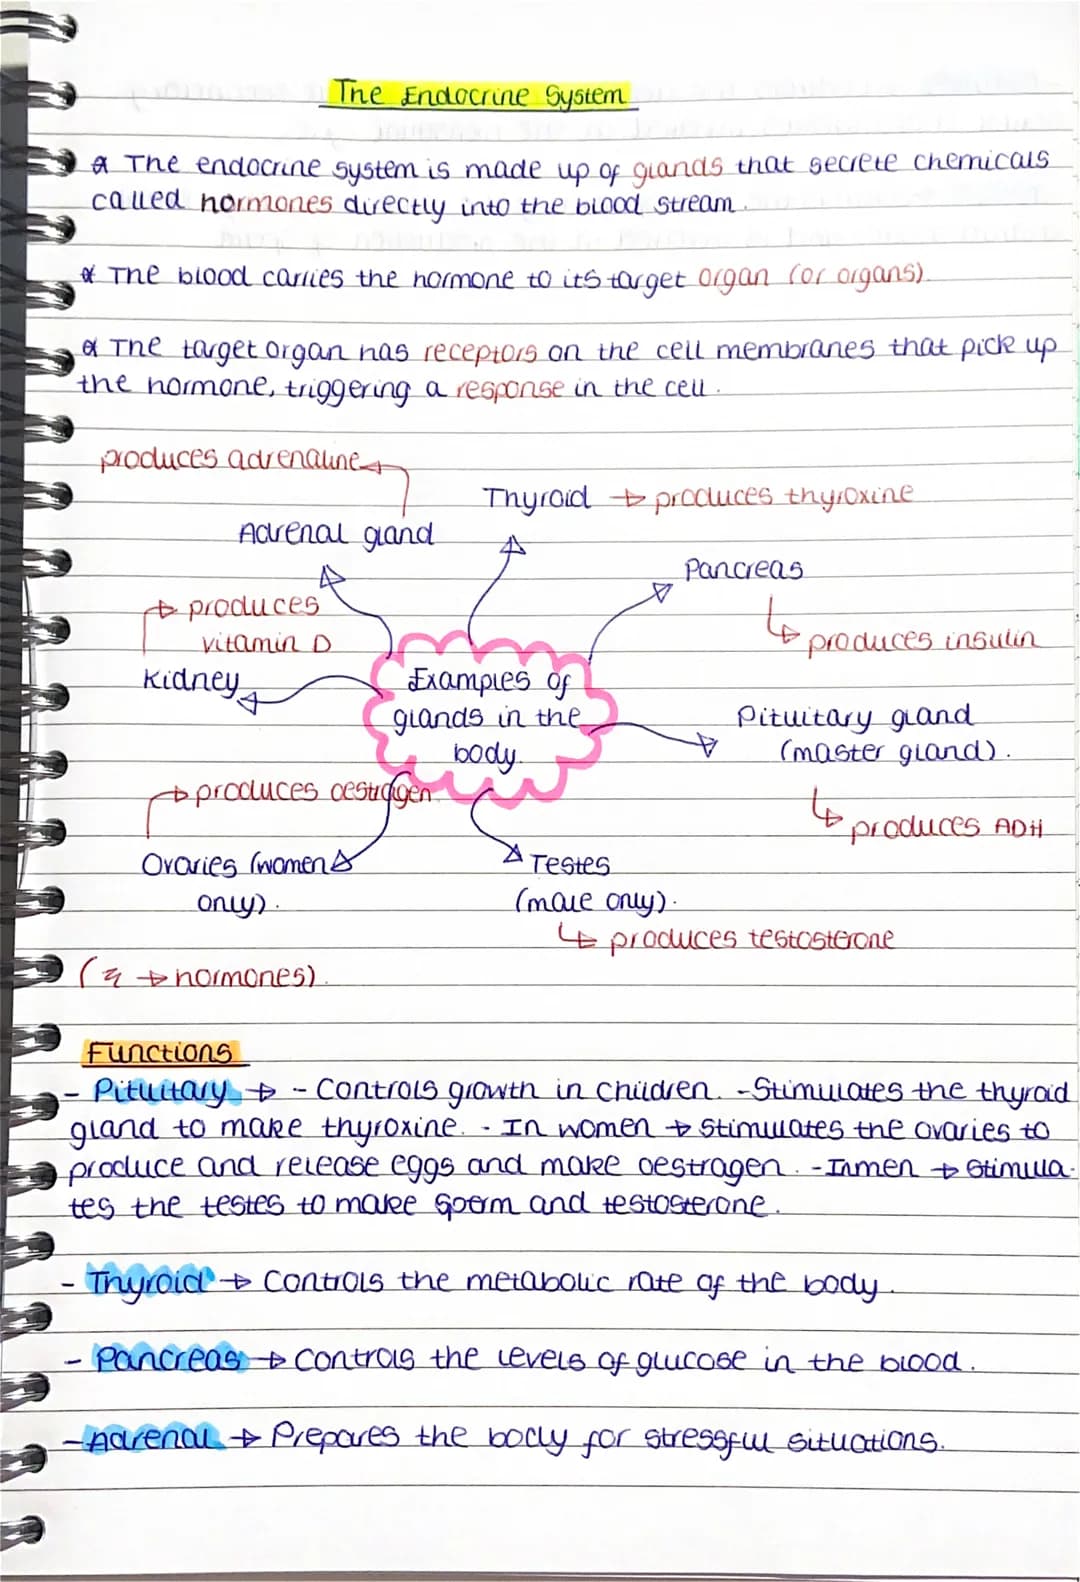 The Endocrine System
* The endocrine system is made up of glands that secrete chemicals
called hormones directly into the blood stream.
* The blood carries the hormone to its target organ (or organs).
* The target organ has receptors on the cell membranes that pick up
the hormone, triggering a response in the cell.
produces adrenaline
Thyroid → produces thyroxine
Adrenal gland
Pancreas
→ produces
vitamin D
→ produces insulin
Kidney
Examples of
glands in the
body.
Pituitary gland
(master gland).
→ produces oestragen.
→ produces ADH
Ovaries (women
only).
Testes
(male only).
→ produces testosterone
( → hormones).
Functions
- Pituitary → - Controls growth in children. - Stimulates the thyroid
gland to make thyroxine. - In women → stimulates the ovaries to
produce and release eggs and make oestragen. - In men → stimula-
tes the testes to make sperm and testosterone.
- Thyroid → Controls the metabolic rate of the body.
- Pancreas → Controls the levels of glucose in the blood.
- Adrenal → Prepares the body for stressful situations.